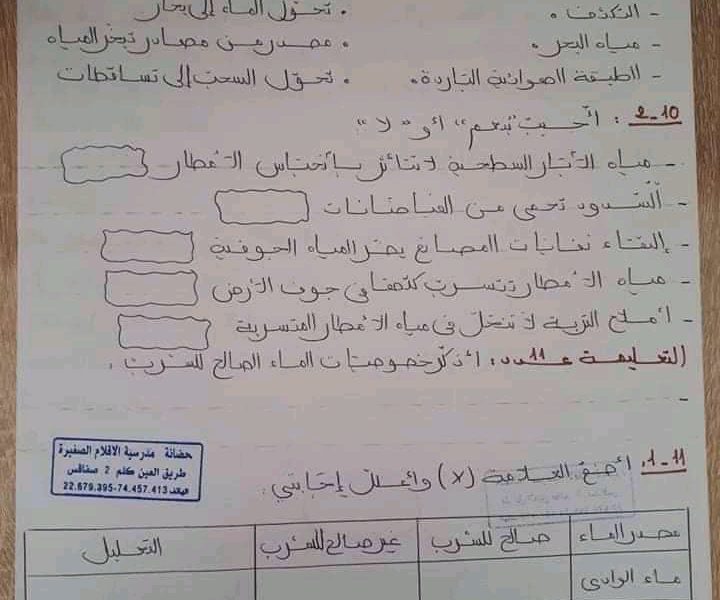 - التكثف • • تحوّل الماء إلى بخار
- مياه البحر • • مصدر من مصادر تبخر المياه
- الطبقة الهوائية الباردة • • تحوّل السحب إلى تساقطات
2-10 : أجيب "بنعم" أو "لا"
- مياه الآبار السطحية لا تتأثر بانحباس الأمطار
- السّدود تحمي من الفياضانات
- إلقاء نفايات المصانع يضر المياه الجوفية
- مياه الأمطار تتسرب كلها في جوف الأرض
- أملاح التربة لا تنحل في مياه الأمطار المتسربة
التعليمة عدد 11: أذكر خصوصيات الماء الصالح للشرب.
-
حضانة مدرسية الأقلام الصغيرة
طريق العين كلم 2 صفاقس
الهاتف 22.679.395-74.457.413
1-11. أضع العلامة (x) وأعلل إجابتي.
مصدر الماء صالح للشرب غير صالح للشرب التعليل
ماء الوادي